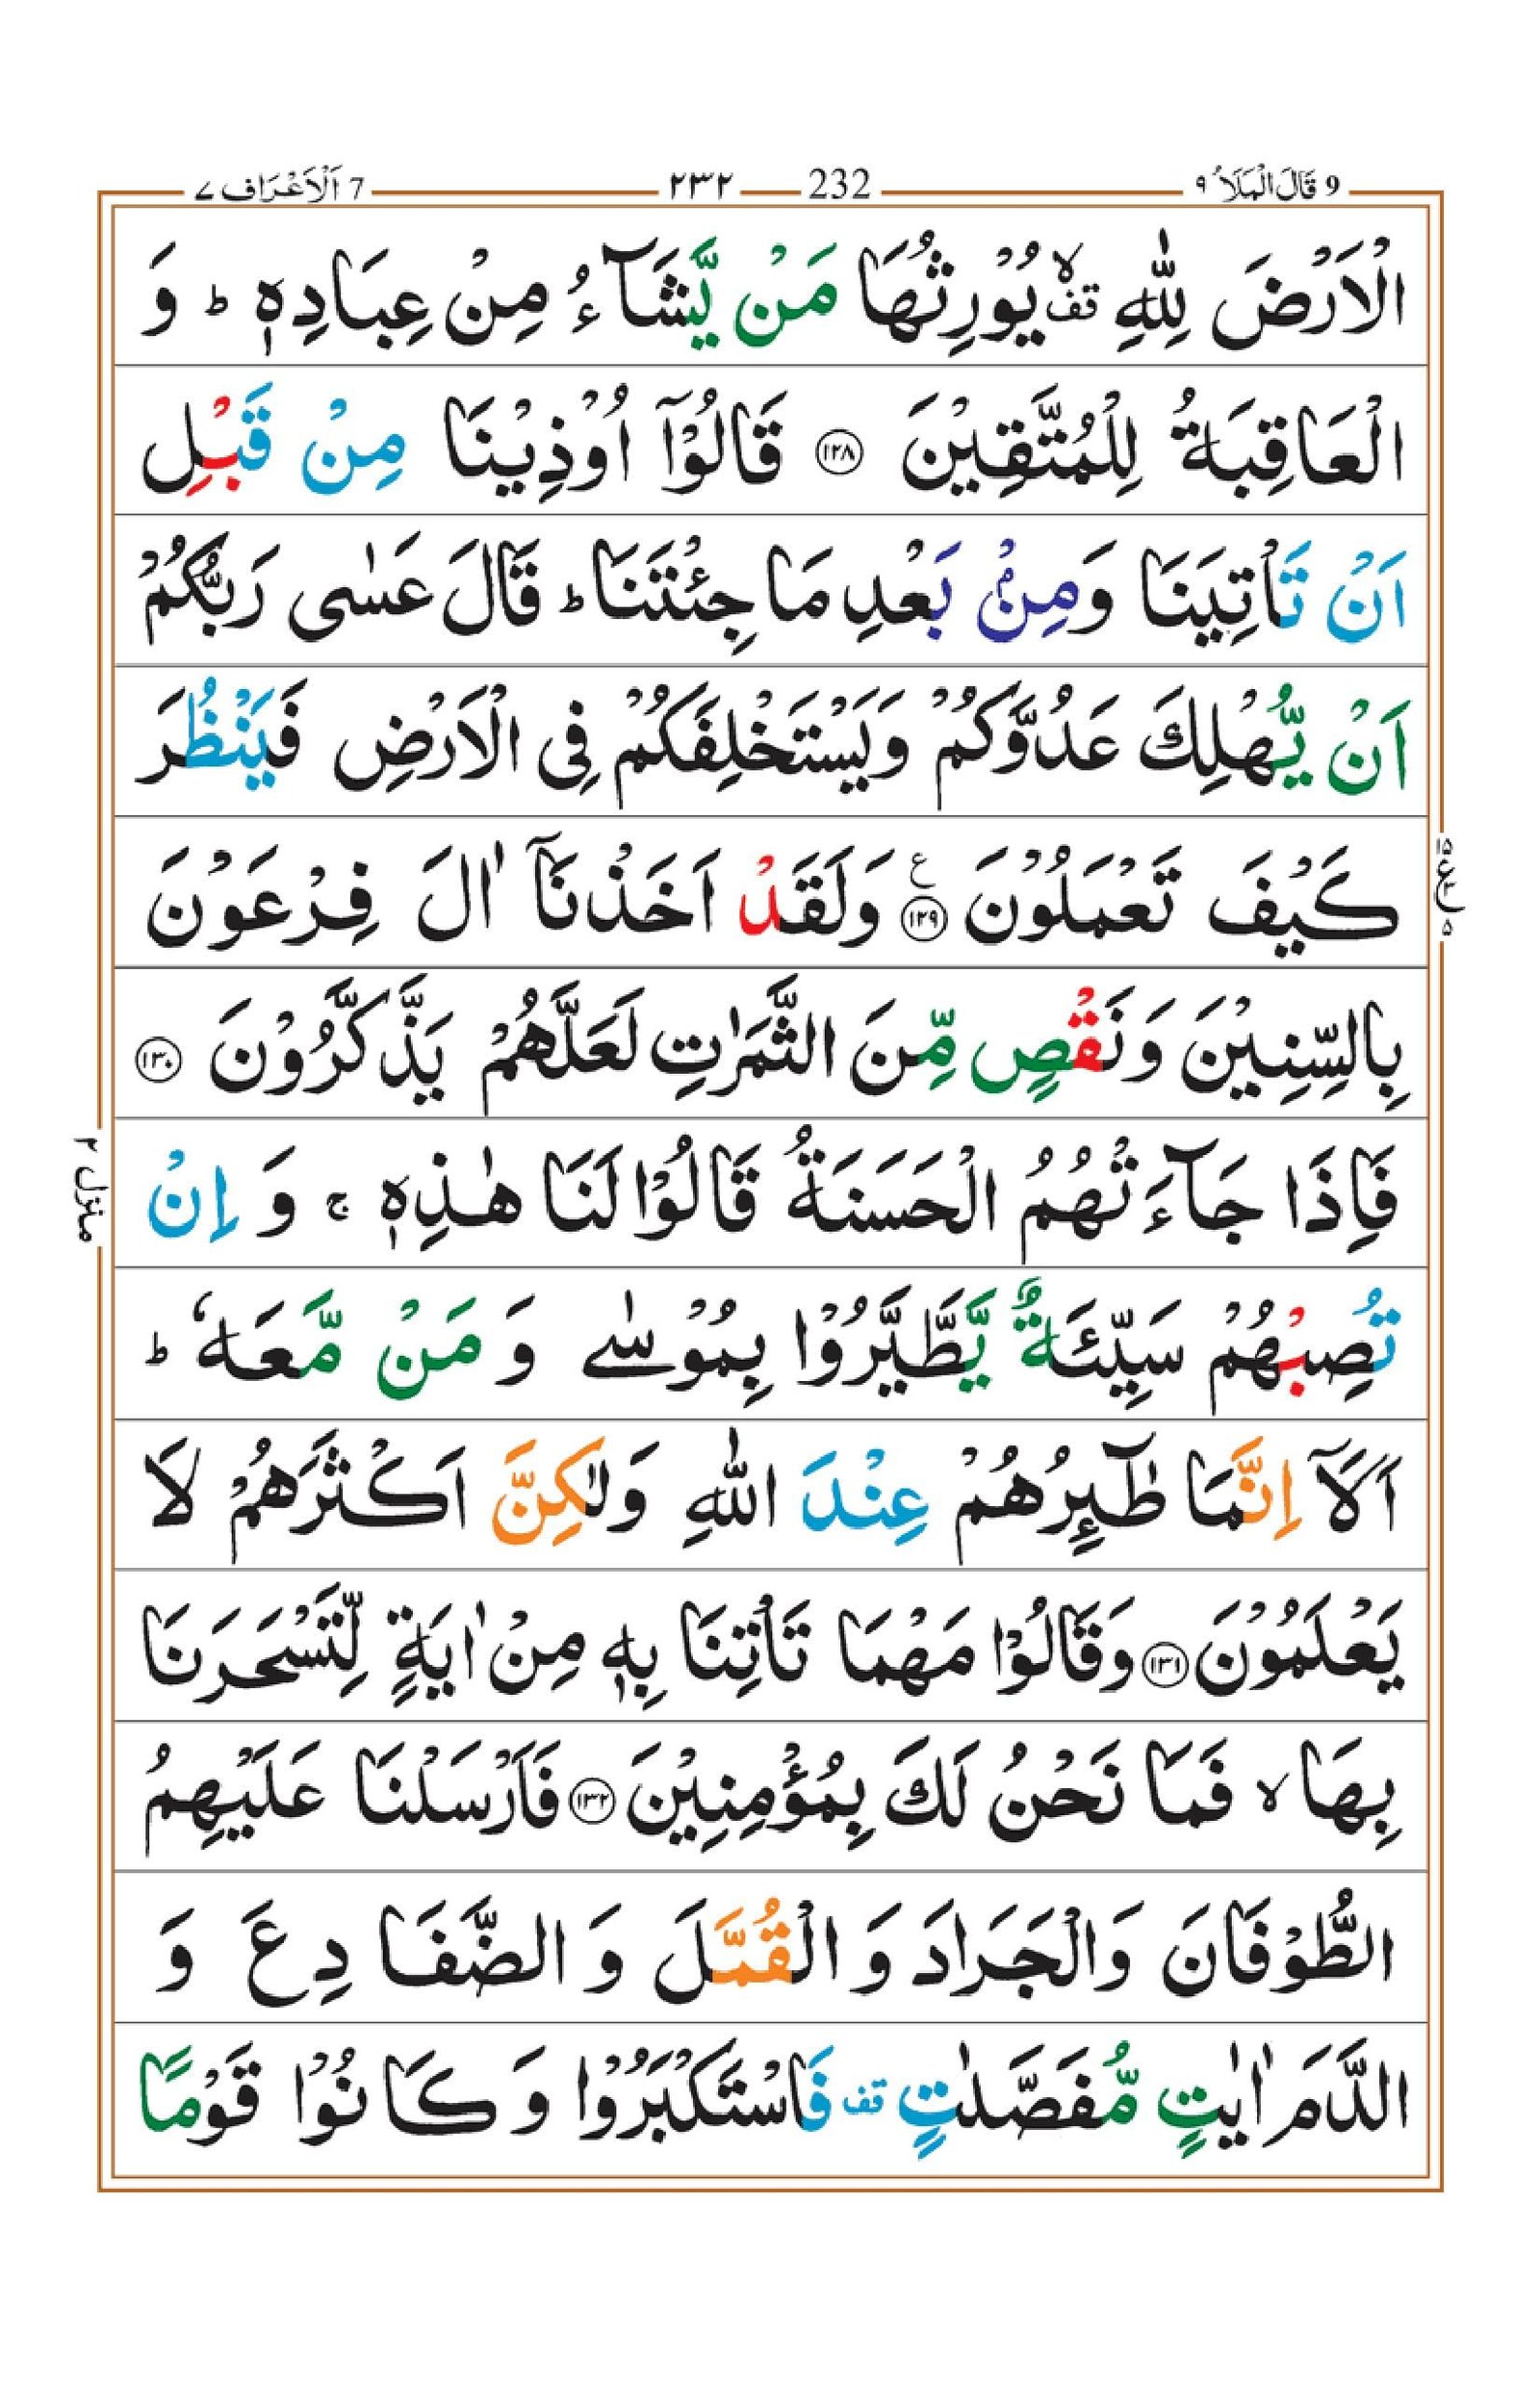 9 قَالَ الْمَلَاُ ٩ 232 ٢٣٢ 7 اَلْاَعْرَاف ٧
الْاَرْضَ لِلّٰهِ ۙ قف يُوْرِثُهَا مَنْ يَّشَآءُ مِنْ عِبَادِهٖ ؕ وَ
الْعَاقِبَةُ لِلْمُتَّقِيْنَ ١٢٨ قَالُوْۤا اُوْذِيْنَا مِنْ قَبْلِ
اَنْ تَاْتِيَنَا وَمِنْۢ بَعْدِ مَا جِئْتَنَا ؕ قَالَ عَسٰى رَبُّكُمْ
اَنْ يُّهْلِكَ عَدُوَّكُمْ وَيَسْتَخْلِفَكُمْ فِى الْاَرْضِ فَيَنْظُرَ
كَيْفَ تَعْمَلُوْنَ ١٢٩ ع وَلَقَدْ اَخَذْنَاۤ اٰلَ فِرْعَوْنَ
١٥ ع ٥
بِالسِّنِيْنَ وَنَقْصٍ مِّنَ الثَّمَرٰتِ لَعَلَّهُمْ يَذَّكَّرُوْنَ ١٣٠
فَاِذَا جَآءَتْهُمُ الْحَسَنَةُ قَالُوْا لَنَا هٰذِهٖ ۚ وَ اِنْ
منزل ٢
تُصِبْهُمْ سَيِّئَةٌ يَّطَّيَّرُوْا بِمُوْسٰى وَ مَنْ مَّعَهٗ ؕ
اَلَاۤ اِنَّمَا طٰٓئِرُهُمْ عِنْدَ اللّٰهِ وَلٰكِنَّ اَكْثَرَهُمْ لَا
يَعْلَمُوْنَ ١٣١ وَقَالُوْا مَهْمَا تَاْتِنَا بِهٖ مِنْ اٰيَةٍ لِّتَسْحَرَنَا
بِهَا ۙ فَمَا نَحْنُ لَكَ بِمُؤْمِنِيْنَ ١٣٢ فَاَرْسَلْنَا عَلَيْهِمُ
الطُّوْفَانَ وَالْجَرَادَ وَ الْقُمَّلَ وَ الضَّفَادِعَ وَ
الدَّمَ اٰيٰتٍ مُّفَصَّلٰتٍ قف فَاسْتَكْبَرُوْا وَ كَانُوْا قَوْمًا